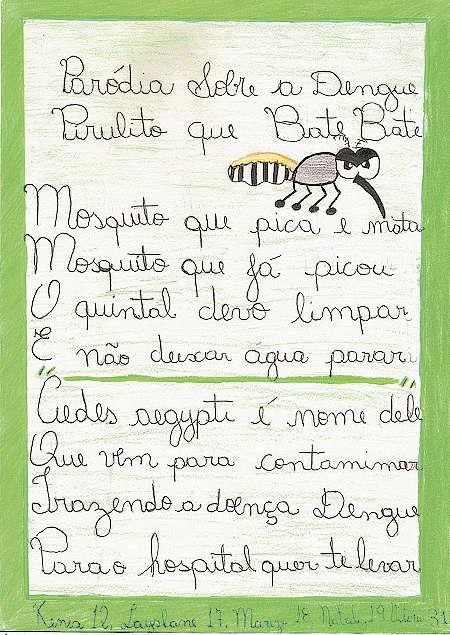 Paródia Sobre a Dengue
Pirulito que Bate Bate
Mosquito que pica e mata
Mosquito que já picou
O quintal devo limpar
E não deixar água parar
Aedes aegypti é nome dele
Que vem para contaminar
Trazendo a doença Dengue
Para o hospital quer te levar
Kenia 12, Layslane 17, 18 19 31